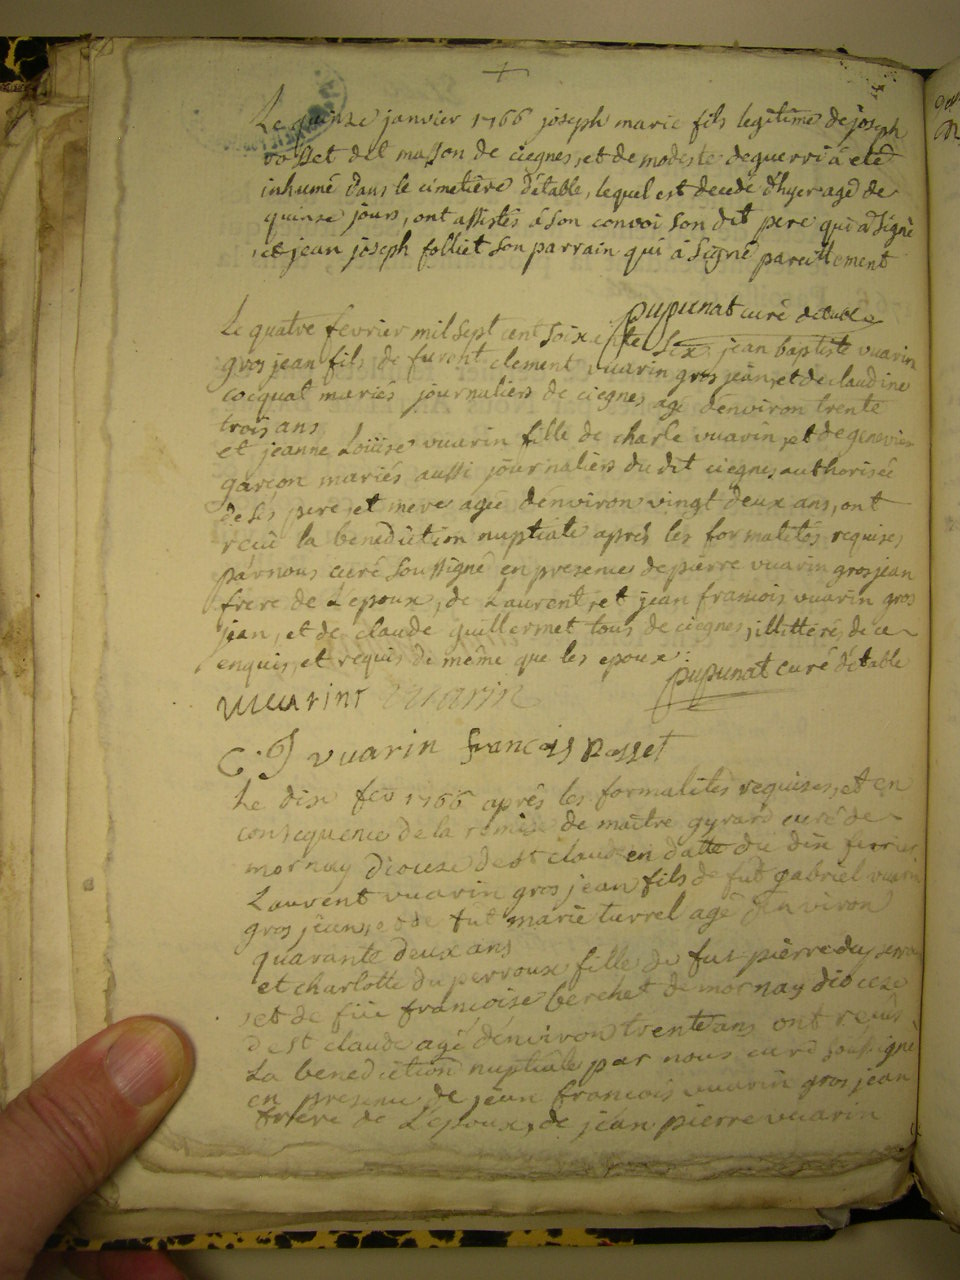 Le quinze janvier 1766 joseph marie fils legitime de joseph
rosset dit masson de ciegnes, et de modeste deguerri à eté
inhumé dans le cimetière d'étable, lequel est decedé d'hyer agé de
quinze jours, ont assistés à son convoi son dit pere qui à signé
et jean joseph folliet son parrain qui à signé pareillement
pupunat curé detable
Le quatre fevrier mil sept cent soixante six jean baptiste vuarin
gros jean fils de clement vuarin gros jean, et de claudine
cocquat mariés journaliers de ciegnes agé d'environ trente
trois ans
et jeanne Loüise vuarin fille de charle vuarin, et de genevieve
garçon mariés aussi journaliers du dit ciegnes, authorisée
de ses pere, et mere agée d'environ vingt deux ans, ont
reçu la benediction nuptiale après les formalités requises
par nous curé soussigné en presence de pierre vuarin gros jean
frere de L'epoux, de Laurent, et jean francois vuarin gros
jean, et de claude guillermet tous de ciegnes, illitterés, de ce
enquis, et requis de même que les epoux.
pupunat curé d'étable
vuarin
C. J vuarin françois Rosset
Le dix fev 1766 après les formalités requises, et en
consequence de la remise de maître gyrard curé de
mornay diocese de st claude en datte du dix fevrier
Laurent vuarin gros jean fils de fut gabriel vuarin
gros jean, et de fut marie turrel agé d'environ
quarante deux ans
et charlotte du perroux fille de fut pierre du
et de füe francoise berchet de mornay diocese
de st claude agé d'environ trente ans ont reçus
La benediction nuptiale par nous curé soussigné
en presence de jean francois vuarin gros jean
frere de L'epoux, de jean pierre vuarin